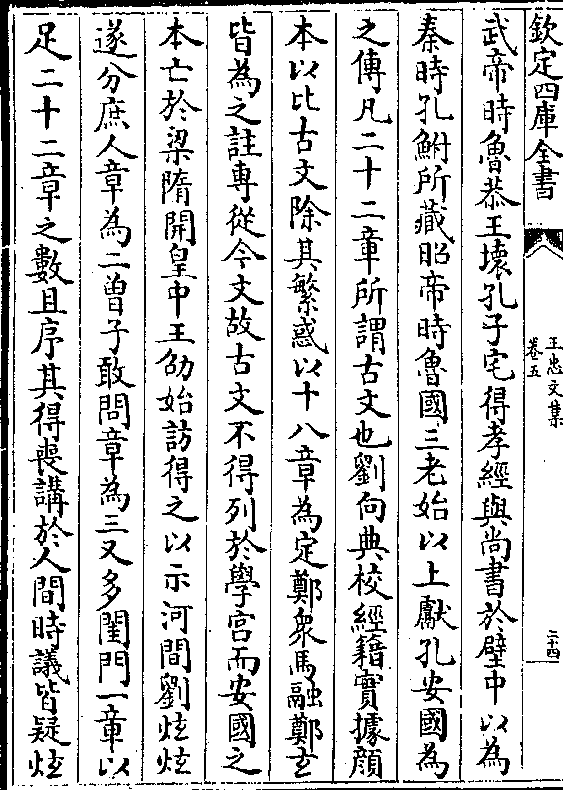 欽定四庫全書
王忠文集
卷五
二十四
武帝時魯恭王壞孔子宅得孝經與尚書於壁中以為
秦時孔鮒所藏昭帝時魯國三老始以上獻孔安國為
之傳凡二十二章所謂古文也劉向典校經籍實據顔
本以比古文除其繁惑以十八章為定鄭衆馬融鄭玄
皆為之註專從今文故古文不得列於學宮而安國之
本亡於梁隋開皇中王劭始訪得之以示河間劉炫炫
遂分庶人章為二曽子敢問章為三又多閨門一章以
足二十二章之數且序其得喪講於人間時議皆疑炫